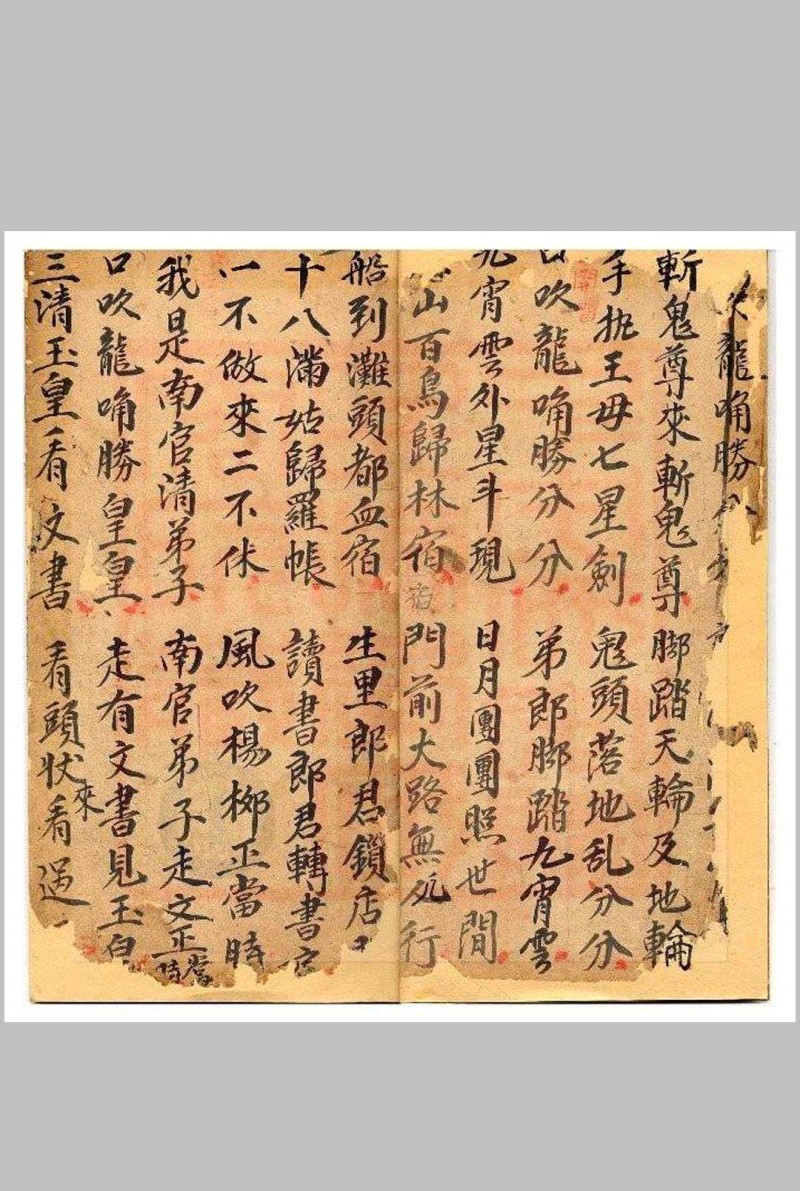 龍角勝
斬鬼尊來斬鬼尊 脚踏天輪及地輪
手執王母七星劍 鬼頭落地乱分分
口吹龍角勝分分 弟郎脚踏九宵雲
九宵雲外星斗現 日月團團照世間
山百鳥歸林宿 門前大路無人行
船到灘頭都血宿 生里郎君鎖店
十八滿姑歸羅帳 讀書郎君轉書
一不做來二不休 風吹楊柳正當時
我是南官清弟子 南官弟子走文正當時
口吹龍角勝皇皇 走有文書見玉皇
三清玉皇看文書 看頭狀來看過